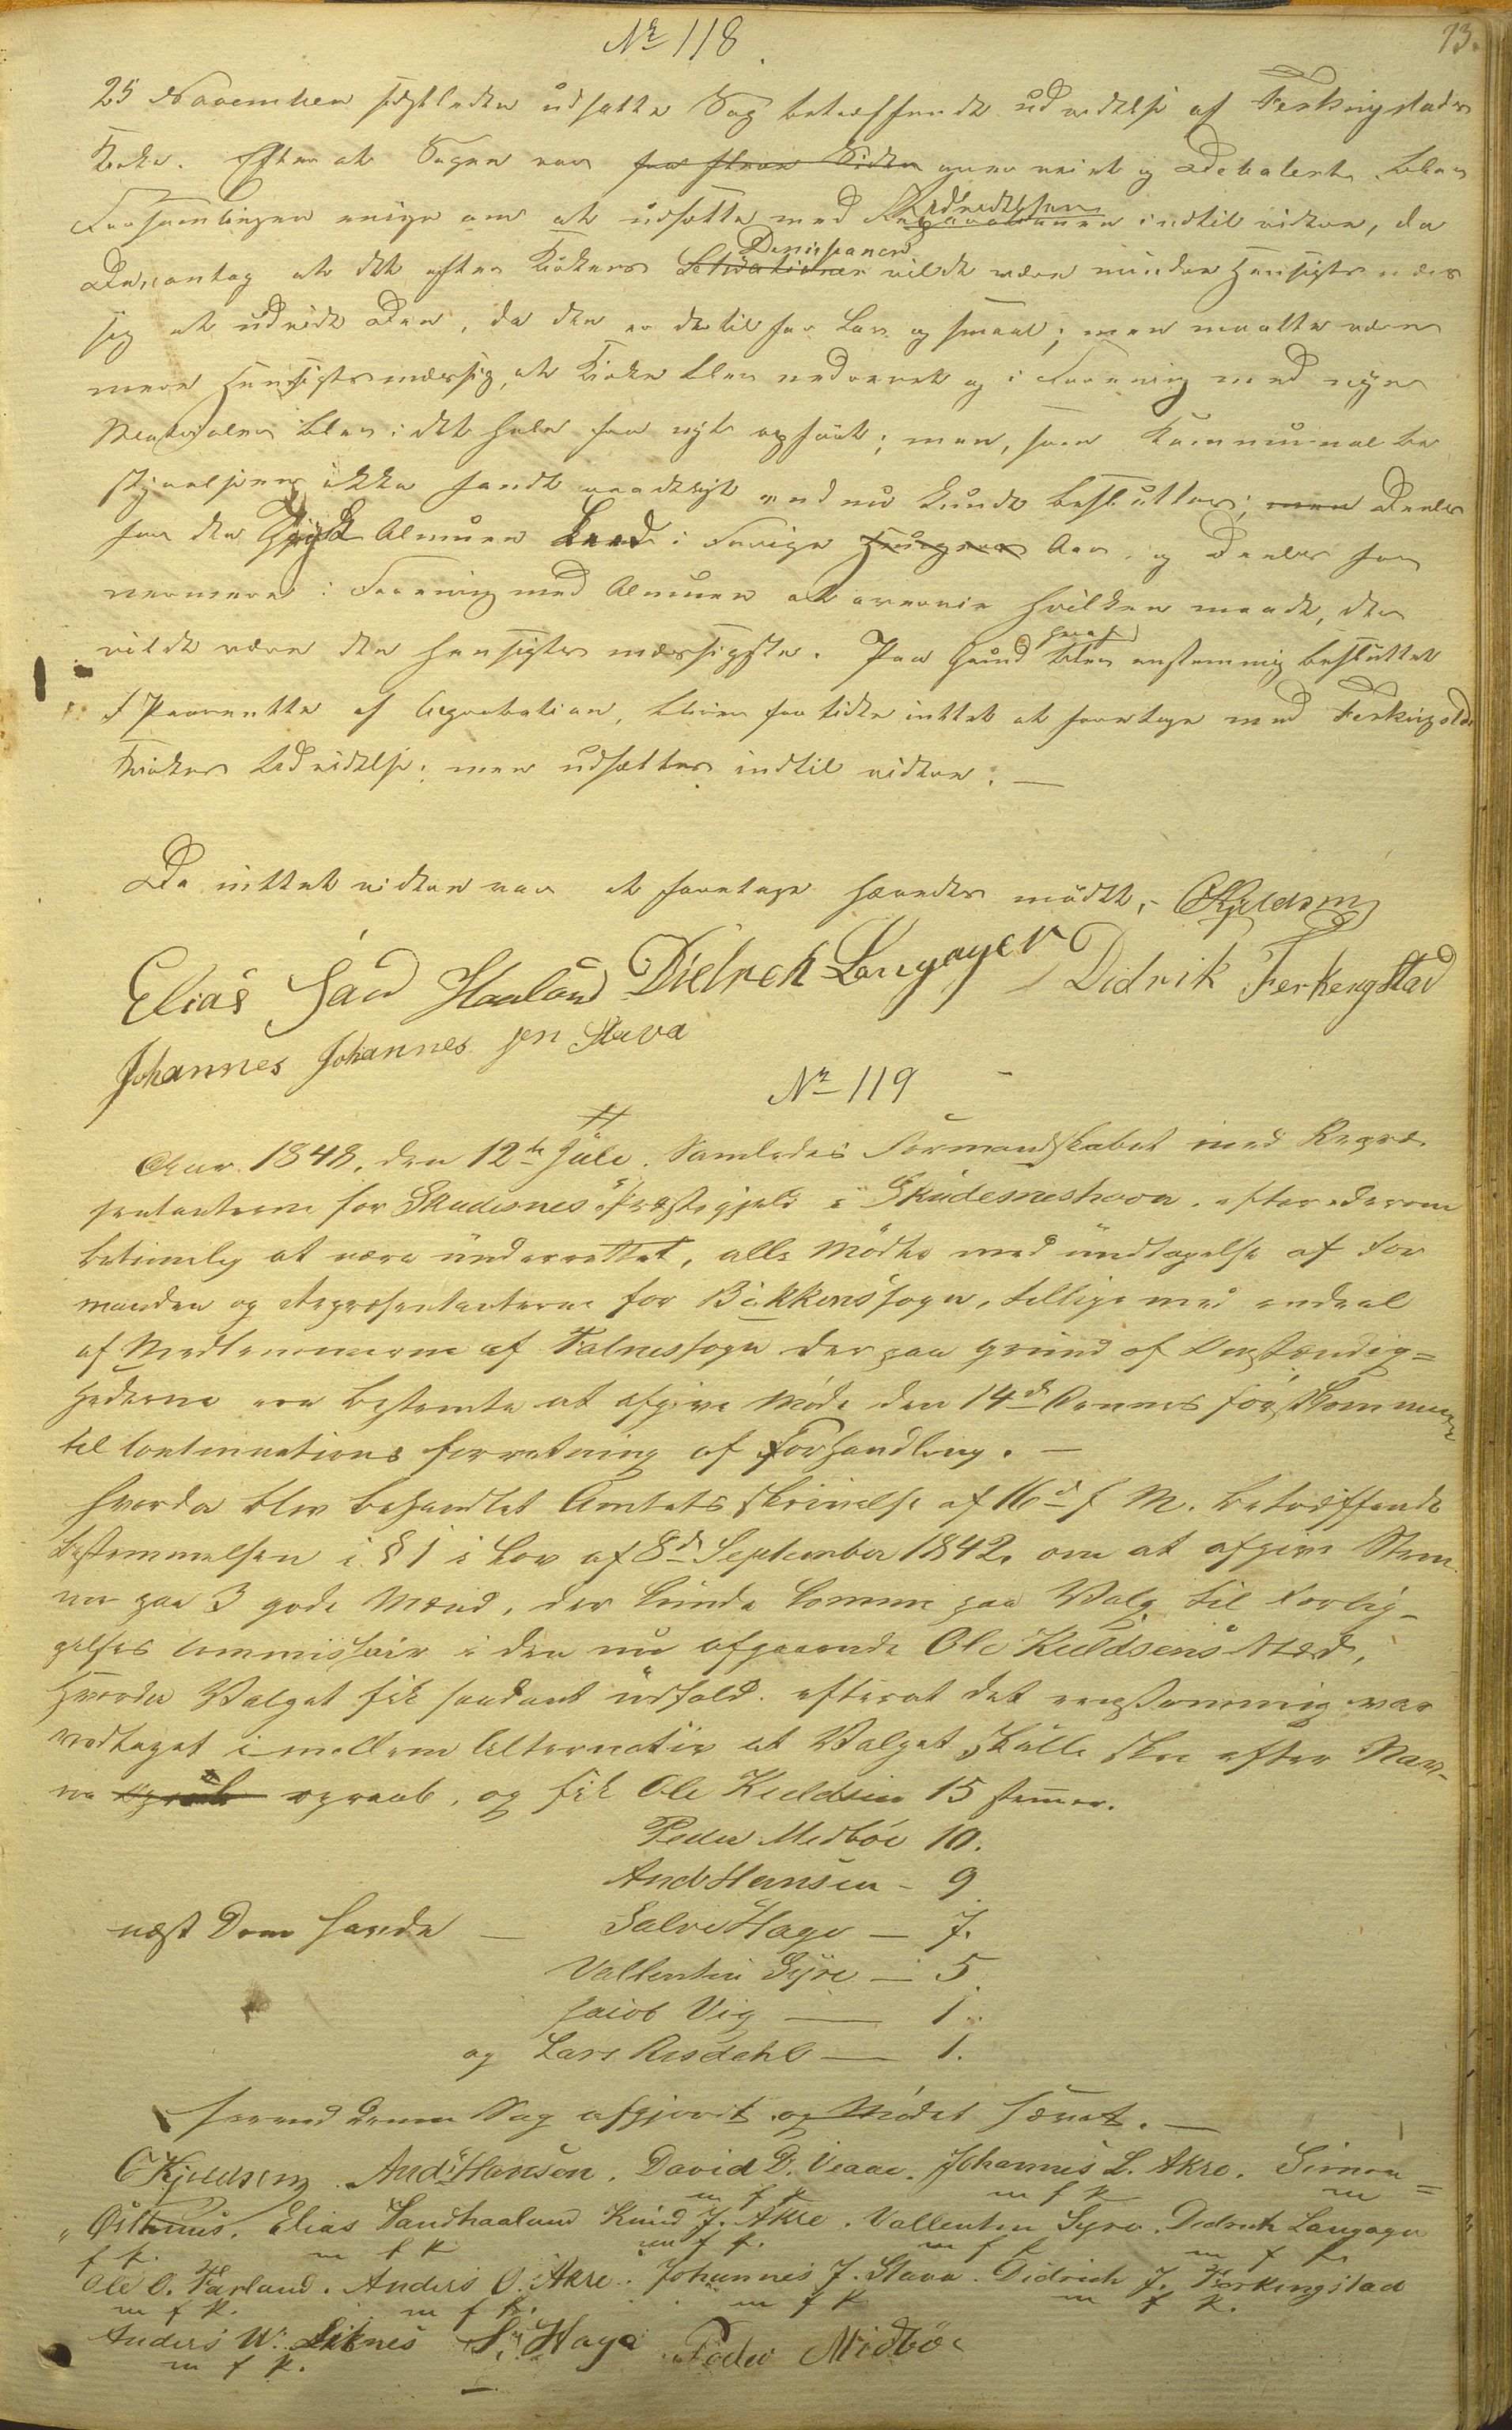 Nr 118
73.
25 November sidstleden udsatte Sag betreffende udvidelse af Ferkingstads
Kirke. Efter at Sagen var nøie veiet og Debatert blev
Forsamlingen enige om at udsætte med Udvidelsen indtil videre, da
De antog at det efter Kirkens Deminsioner vilde være mindre Hensigts mæs
sig at udvide Den, da den er dertil for lav og smaal; men maatte være
mere Hensigtsmæssig, at Kirken blev nedrevet og i Forening med nye
Materialer blev i det hele paa nyt opført; men, som Kommunal be
styrelsen ikke fandt raadeligt end nu kunde beslutte; Deels
for den Tryk Almuen Leed i Forrige Aar, og Deels for
nermere i Forening med Almuen at overveie hvilken maade, der
vilde være den hensigtsmæssigste. Paa Grund heraf blev enstemmig besluttet
I Paavente af Approbation, bliver for tiden inttet at foretage med Ferkingstds
Kirkes Udvidelse; men udsættes indtil videre. —
Da inttet videre var at foretage hævedes mødet, – OKjeldsen
Elias Sand Haaland Dielrek Langager Didrik Ferkengstad
Johannes Johannes sen Stava
Nr 119
Aar 1848, den 12te Juli. Samledes Formandskabet med Repræ-
sentanterne for Skudesnes Præstegjeld i Skudesneshavn. efter derom
betimelig at være underrettet, alle Mødte med undtagelse af For
manden og Repræsentanterne for Bókkens sogn, tillige med endeel
af Medlemmerne af Falnes sogn der paa Grund af Omstændig=
hederne ere bestemte at afgive Møde den 14de Dennes førstkommende
til Continuations forretning af Forhandling. —
hvorda blev behandlet Amtets skrivelse af 16de f. M. betræffende
bestemmelsen i § 1 i Lov af 8de September 1842. om at afgive Stem
mer paa 3 gode Mænd, der kunde komme paa Valg til Forlig-
gelses Commissair i den nu afgaaende Ole Kieldsens Sted,
hvorda Valget fik saadant udfald. efterat det eenstemmig var
vedtaget imellem Alternativ at Valget skulle skee efter Nav-
ne opraab, og fik Ole Kieldsen 15 stemer.
Peder Medbóe 10.
And Hansen – 9
næst Dem havde — Salve Hage — 7.
Vallentin Syre — 5
Jacob Vig — 1.
og Lars Risdahl — 1.
hermed denne Sag afgjort og Mødet hævet. —
OKjeldsen. Andr Hansen. David D. Veaae. Johannes L. Akre. Simon =
m f p m f p m
„ Ósthuus. Elias Sandhaaland Knud J. Akre. Vallentin Syre. Didrich Langager
f p. m f p m f p. m f p m f p.
Ole O. Færland. Anders O. Akre. Johannes J. Stava. Didrich J. Ferkingstad
m f p. m f p. m f p m f p.
Anders W. Liknes S. Hage Peder Midbøe
m f p.